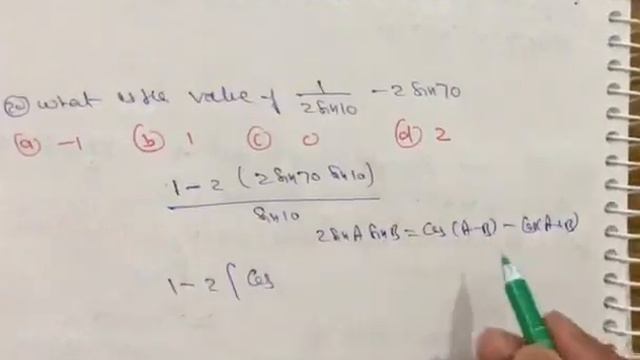 20 what is the value of 1/2sin10 - 2 sin70
(a) -1 (b) 1 (c) 0 (d) 2
1-2 (2 sin70 sin10) / sin10
2 sinA sinB = Cos (A-B) - Cos(A+B)
1-2 ( Cos